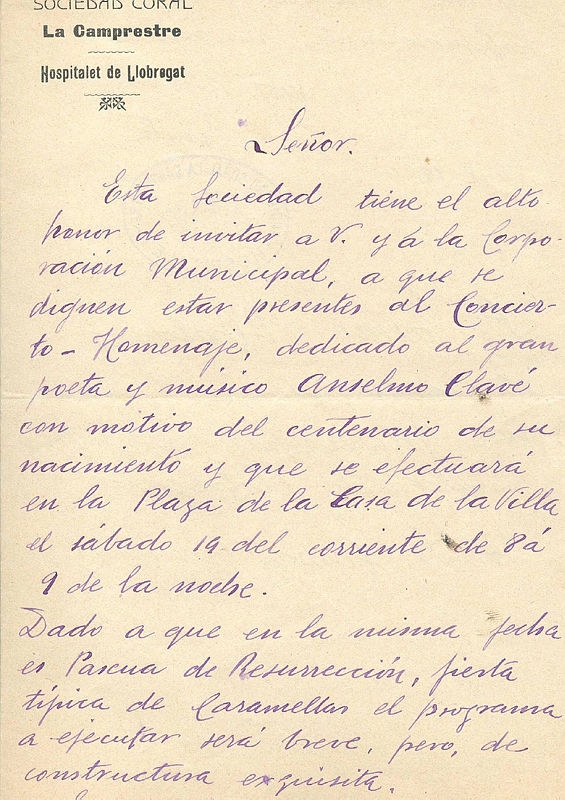 SOCIEDAD CORAL
La Campestre
Hospitalet de Llobregat
Señor.
Esta Sociedad tiene el alto
honor de invitar a V. y á la Corpo-
ración Municipal, a que se
dignen estar presentes al Concier-
to - Homenaje, dedicado al gran
poeta y músico Anselmo Clavé
con motivo del centenario de su
nacimiento y que se efectuará
en la Plaza de la Casa de la Villa
el sábado 19 del corriente de 8 á
9 de la noche.
Dado a que en la misma fecha
es Pascua de Resurrección, fiesta
típica de Caramellas el programa
a ejecutar será breve, pero, de
constructura exquisita.